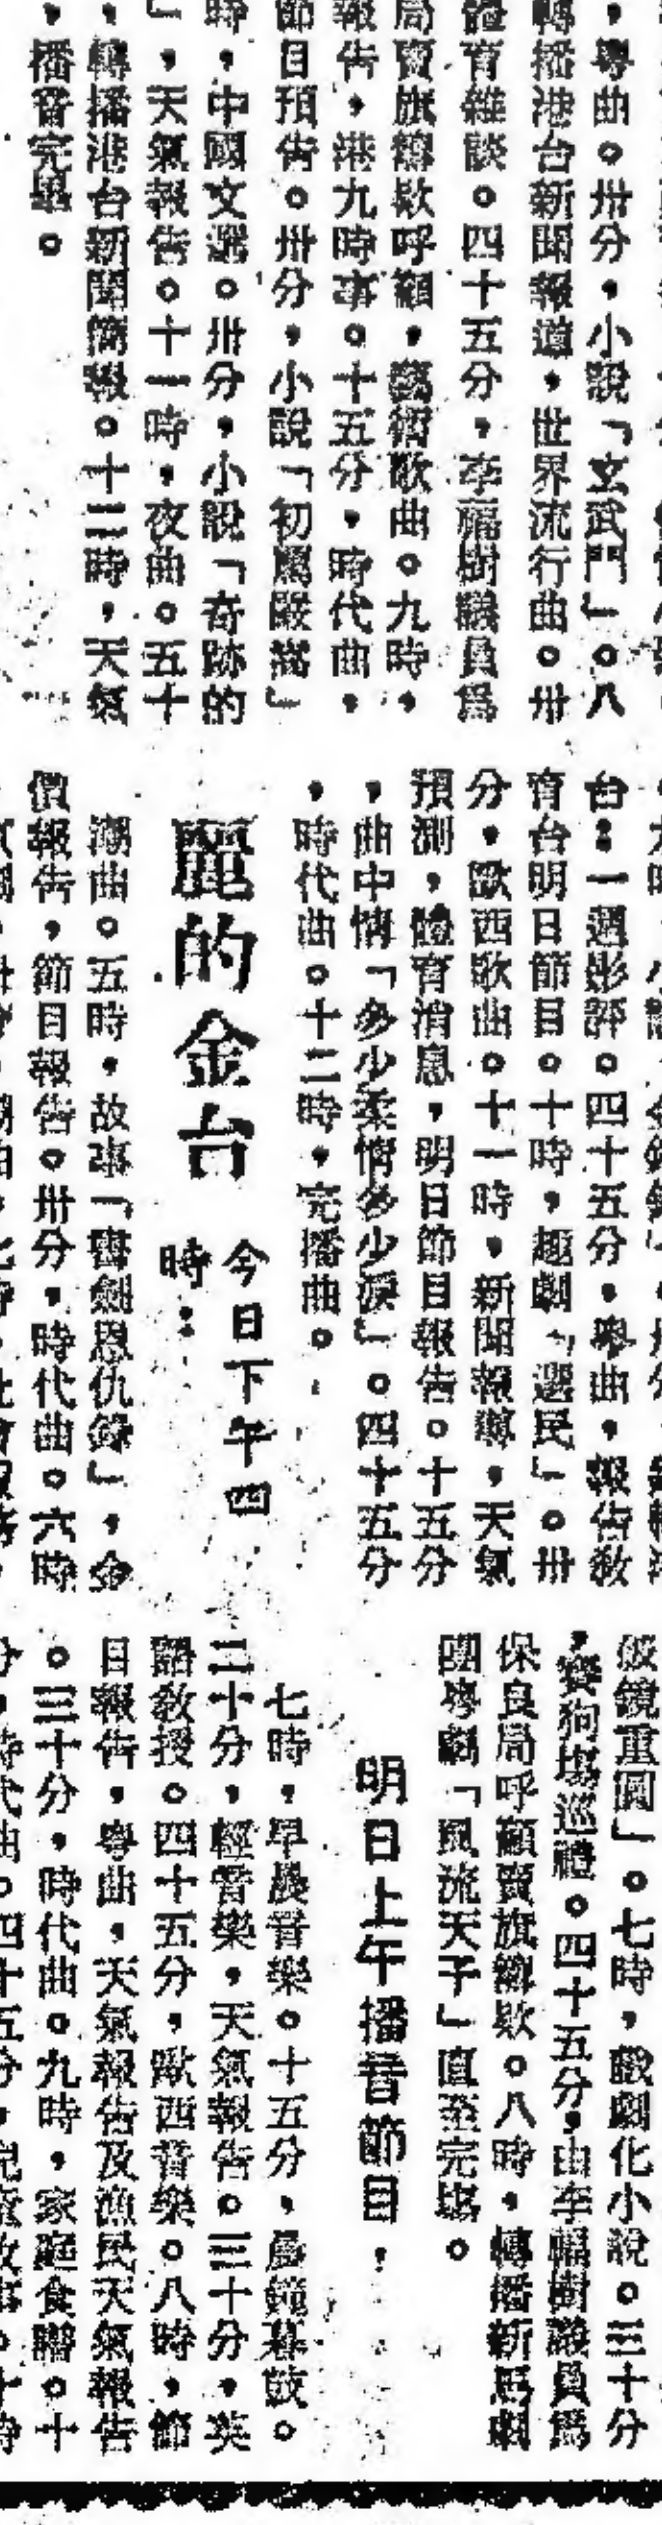 ，粵曲。卅分，小說「玄武門」。八
轉播港台新聞報道，世界流行曲。卅
體育雜談。四十五分，李福樹議員爲
局賣旗籌欵呼籲，藝術歌曲。九時，
報告，港九時事。十五分，時代曲，
節目預告。卅分，小說「初
時，中國文選。卅分，小說「奇跡的
」，天氣報告。十一時，夜曲。五十
，轉播港台新聞簡報。十二時，天氣
，播音完畢。
台：一週影評。四十五分，粵曲，報告敎
育台明日節目。十時，趣劇「選民」。卅
分，歐西歌曲。十一時，新聞報導，天氣
預測，體育消息，明日節目報告。十五分
，曲中情「多少柔情多少淚」。四十五分
，時代曲。十二時，完播曲。
麗的金台
今日下午四
時：
潮曲。五時，故事「書劍恩仇錄」，金
價報告，節目報告。卅分，時代曲。六時
鏡重圓」。七時，戲劇化小說。三十分
，賽狗塲巡禮。四十五分，由李福樹議員爲
保良局呼籲賣旗籌欵。八時，轉播新馬劇
團粵劇「風流天子」直至完塲。
明日上午播音節目：
七時，早晨音樂。十五分，晨鐘暮鼓。
二十分，輕音樂，天氣報告。三十分，英
語敎授。四十五分，歐西音樂。八時，節
目報告，粵曲，天氣報告及漁民天氣報告
。三十分，時代曲。九時，家庭食譜。十
分，時代曲。四十五分，兒童故事。十時